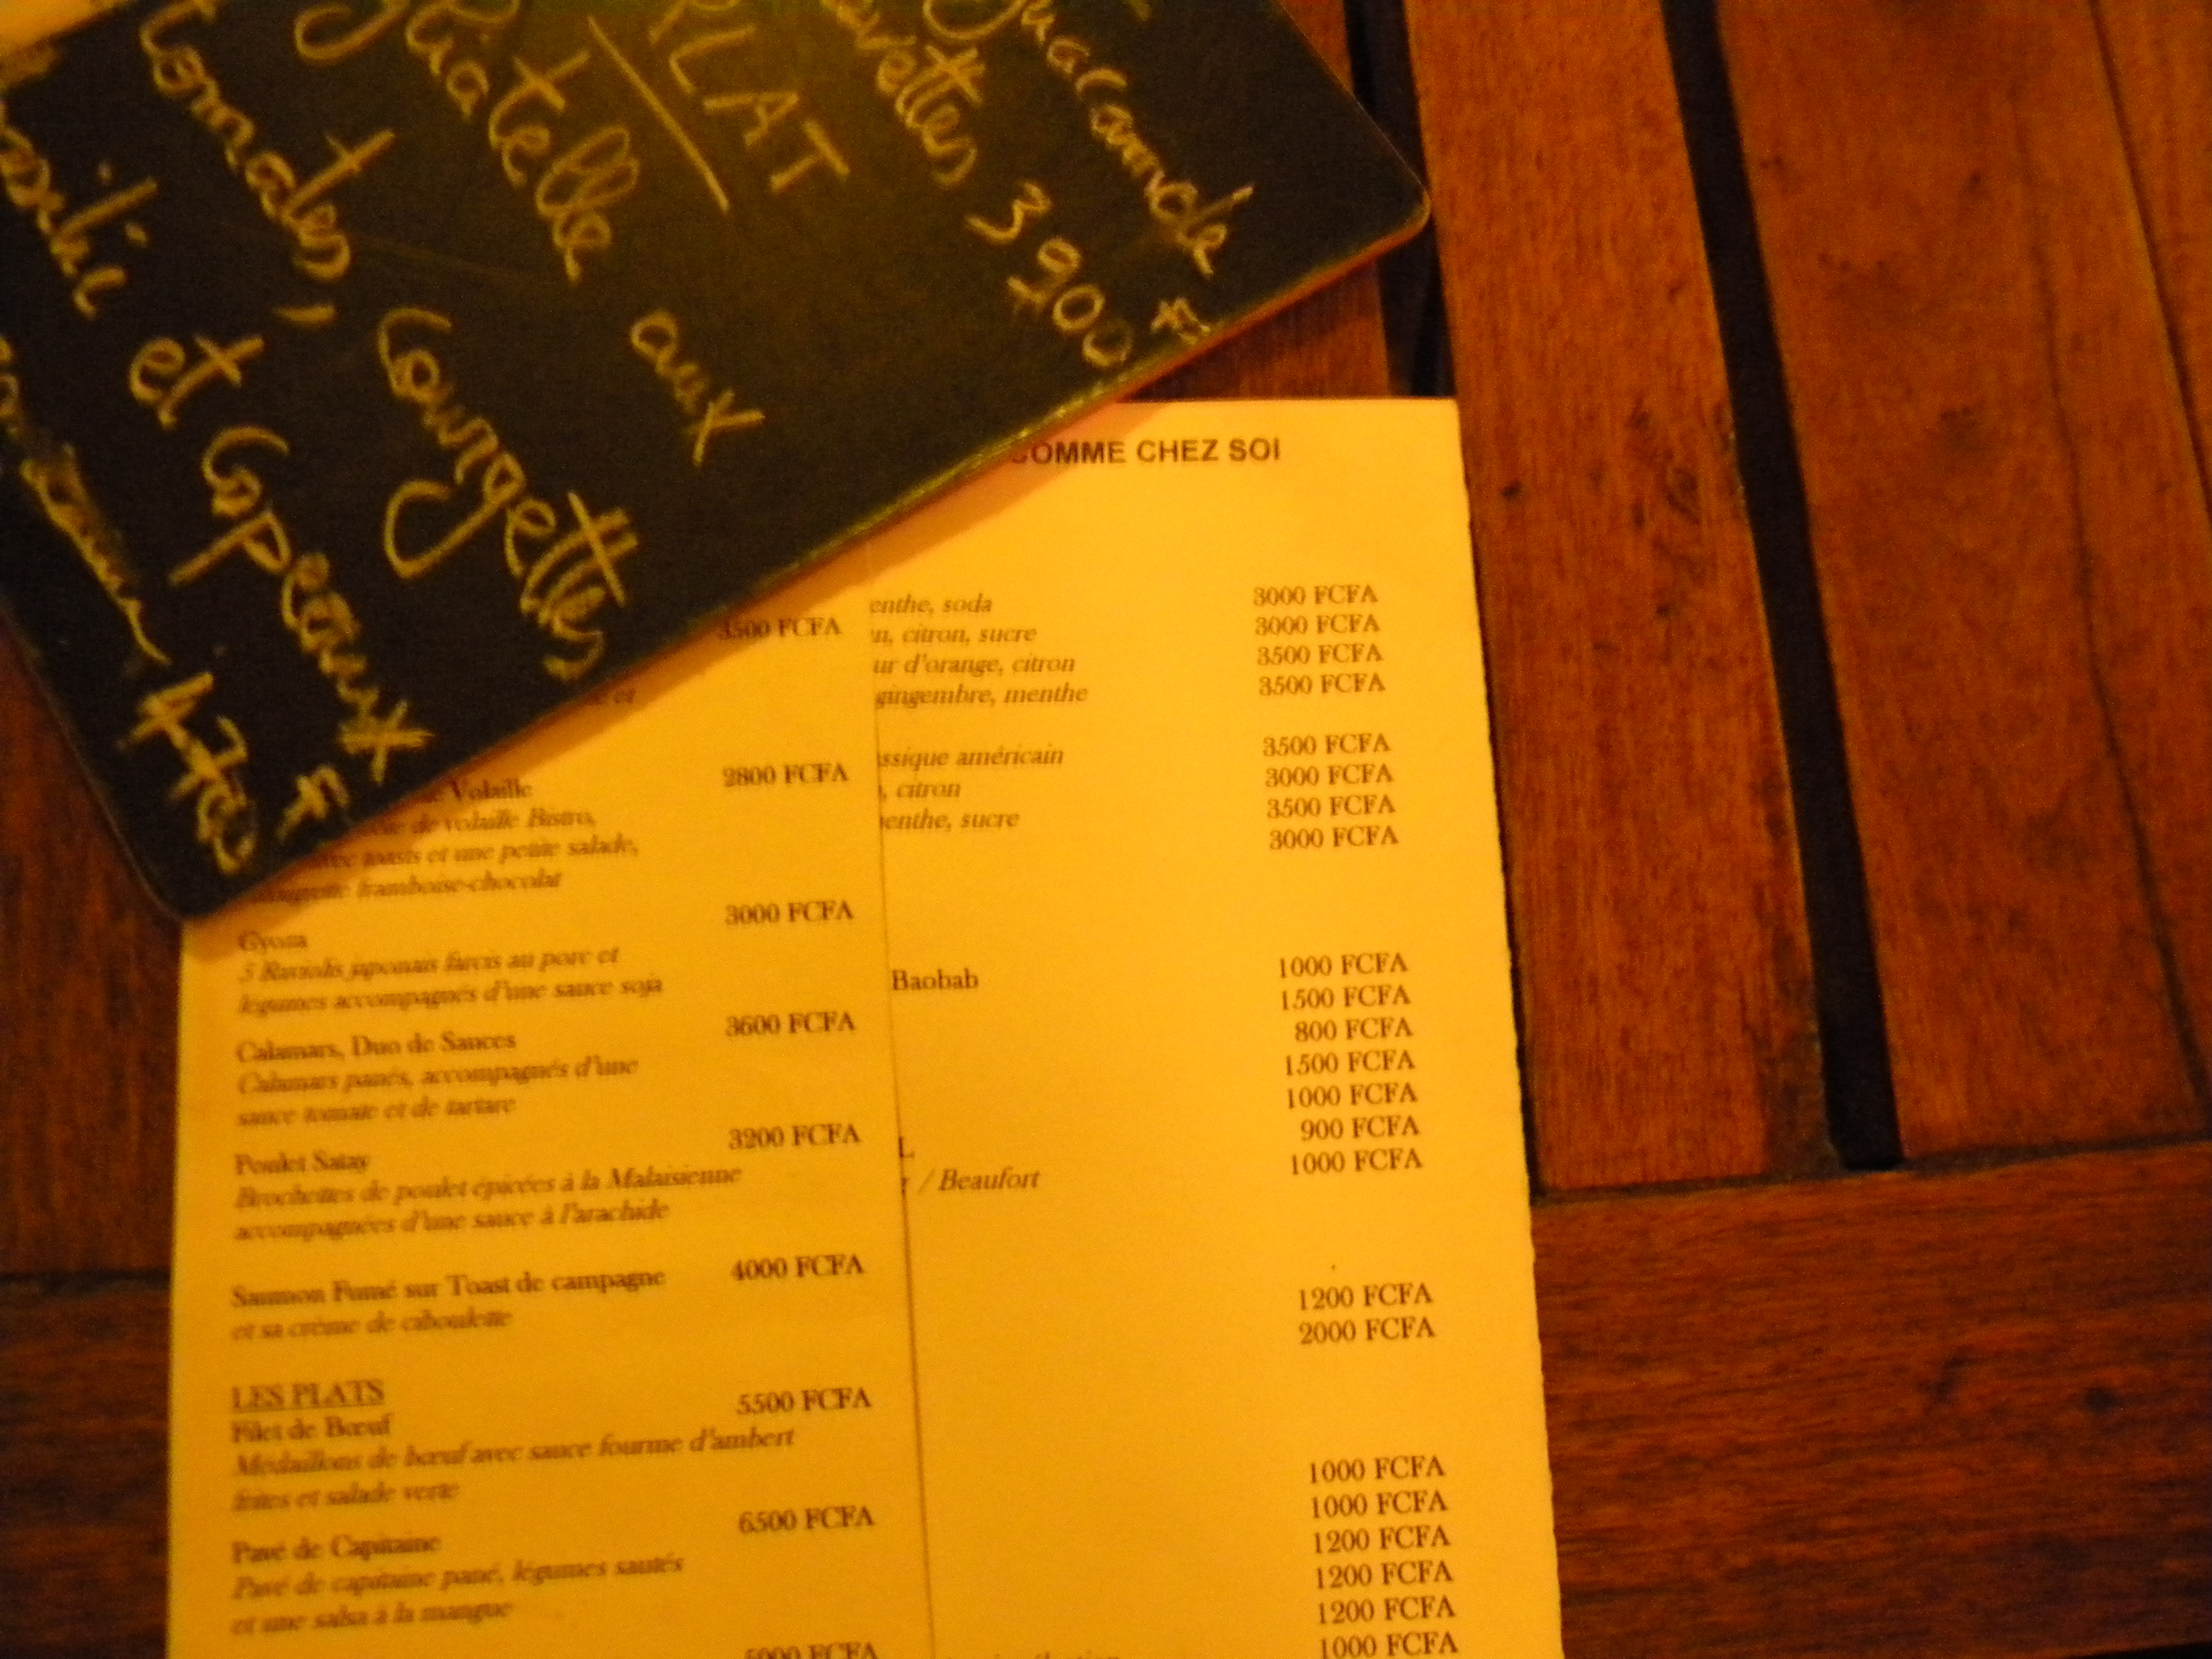 guacamole
crevettes 3900 F
PLAT
aux
tomates, courgettes
et copeaux
F
COMME CHEZ SOI
3500 FCFA
et
Volaille 2800 FCFA
de volaille Bistro,
avec toasts et une petite salade,
framboise-chocolat
Gyoza 3000 FCFA
5 Raviolis japonais farcis au porc et
légumes accompagnés d'une sauce soja
Calamars, Duo de Sauces 3600 FCFA
Calamars panés, accompagnés d'une
sauce tomate et de tartare
Poulet Satay 3200 FCFA
Brochettes de poulet épicées à la Malaisienne
accompagnées d'une sauce à l'arachide
Saumon Fumé sur Toast de campagne 4000 FCFA
et sa crème de ciboulette
LES PLATS
Filet de Bœuf 5500 FCFA
Médaillons de bœuf avec sauce fourme d'ambert
frites et salade verte
Pavé de Capitaine 6500 FCFA
Pavé de capitaine pané, légumes sautés
et une salsa à la mangue
5000 FCFA
enthe, soda 3000 FCFA
n, citron, sucre 3000 FCFA
ur d'orange, citron 3500 FCFA
gingembre, menthe 3500 FCFA
ssique américain 3500 FCFA
, citron 3000 FCFA
enthe, sucre 3500 FCFA
3000 FCFA
Baobab 1000 FCFA
1500 FCFA
800 FCFA
1500 FCFA
1000 FCFA
L 900 FCFA
/ Beaufort 1000 FCFA
1200 FCFA
2000 FCFA
1000 FCFA
1000 FCFA
1200 FCFA
1200 FCFA
1200 FCFA
1000 FCFA